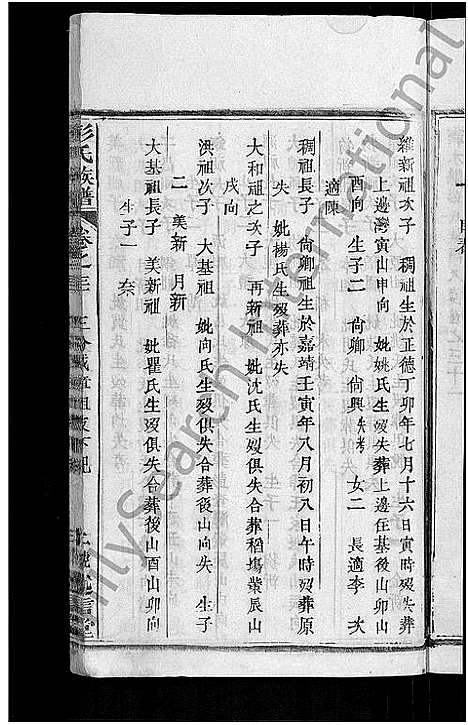 維新祖次子 稠祖生於正德丁卯年七月十六日寅時歿失葬
上邊灣寅山申向 妣姚氏生歿失葬上邊庄基後山卯山
酉向 生子二 尙卿 尙興失考 女二 長適李 次
適陳
稠祖長子 尙卿祖生於嘉靖壬寅年八月初八日午時歿葬原
失 妣楊氏生歿葬亦失
大和祖之次子 再新祖 妣沈氏生歿俱失合葬稻塲業辰山
戌向
洪祖次子 大基祖 妣向氏生歿俱失合葬後山向失 生子
二 美新 月新
大基祖長子 美新祖 妣瞿氏生歿俱失合葬後山酉山卯向
生子一
彭氏族譜
卷之
FamilySearch International